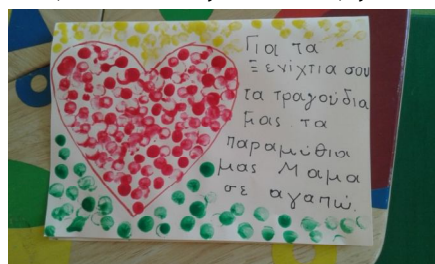 Για τα
Ξενίχτια σου
τα τραγούδια
μας τα
παραμύθια
μας Μαμα
σε αγαπώ.